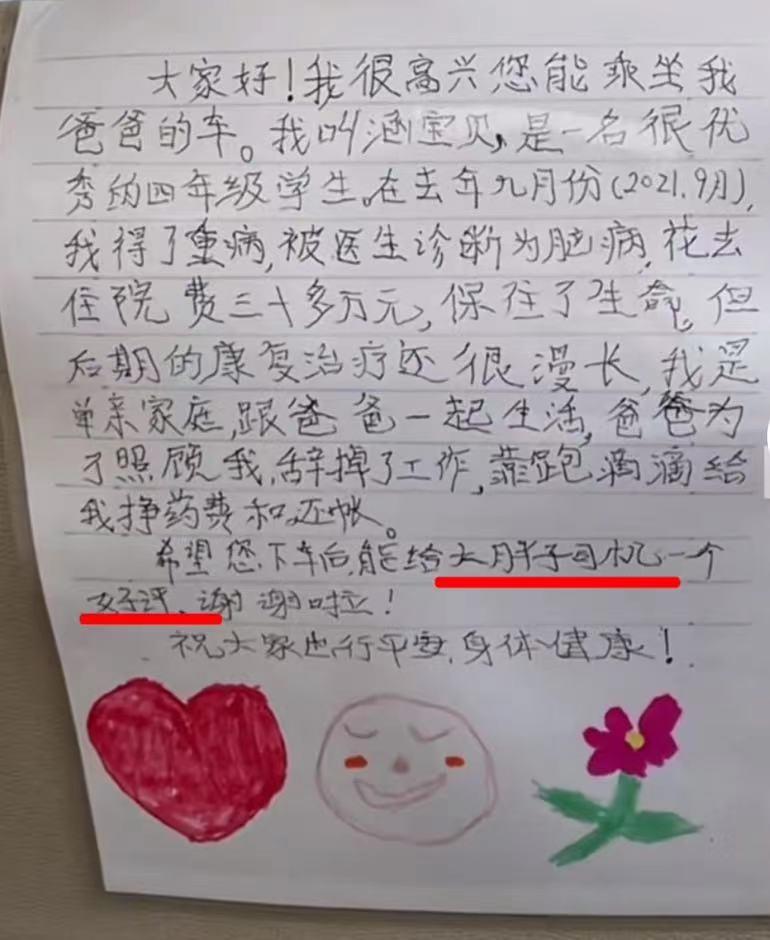 大家好！我很高兴您能乘坐我
爸爸的车。我叫涵宝贝，是一名很优
秀的四年级学生。在去年九月份(2021.9月)，
我得了重病，被医生诊断为脑病，花去
住院费三十多万元，保住了生命。但
后期的康复治疗还很漫长，我是
单亲家庭，跟爸爸一起生活，爸爸为
了照顾我，辞掉了工作，靠跑滴滴给
我挣药费和还帐。
希望您下车后，能给大胖子司机一个
好评、谢谢啦！
祝大家出行平安，身体健康！